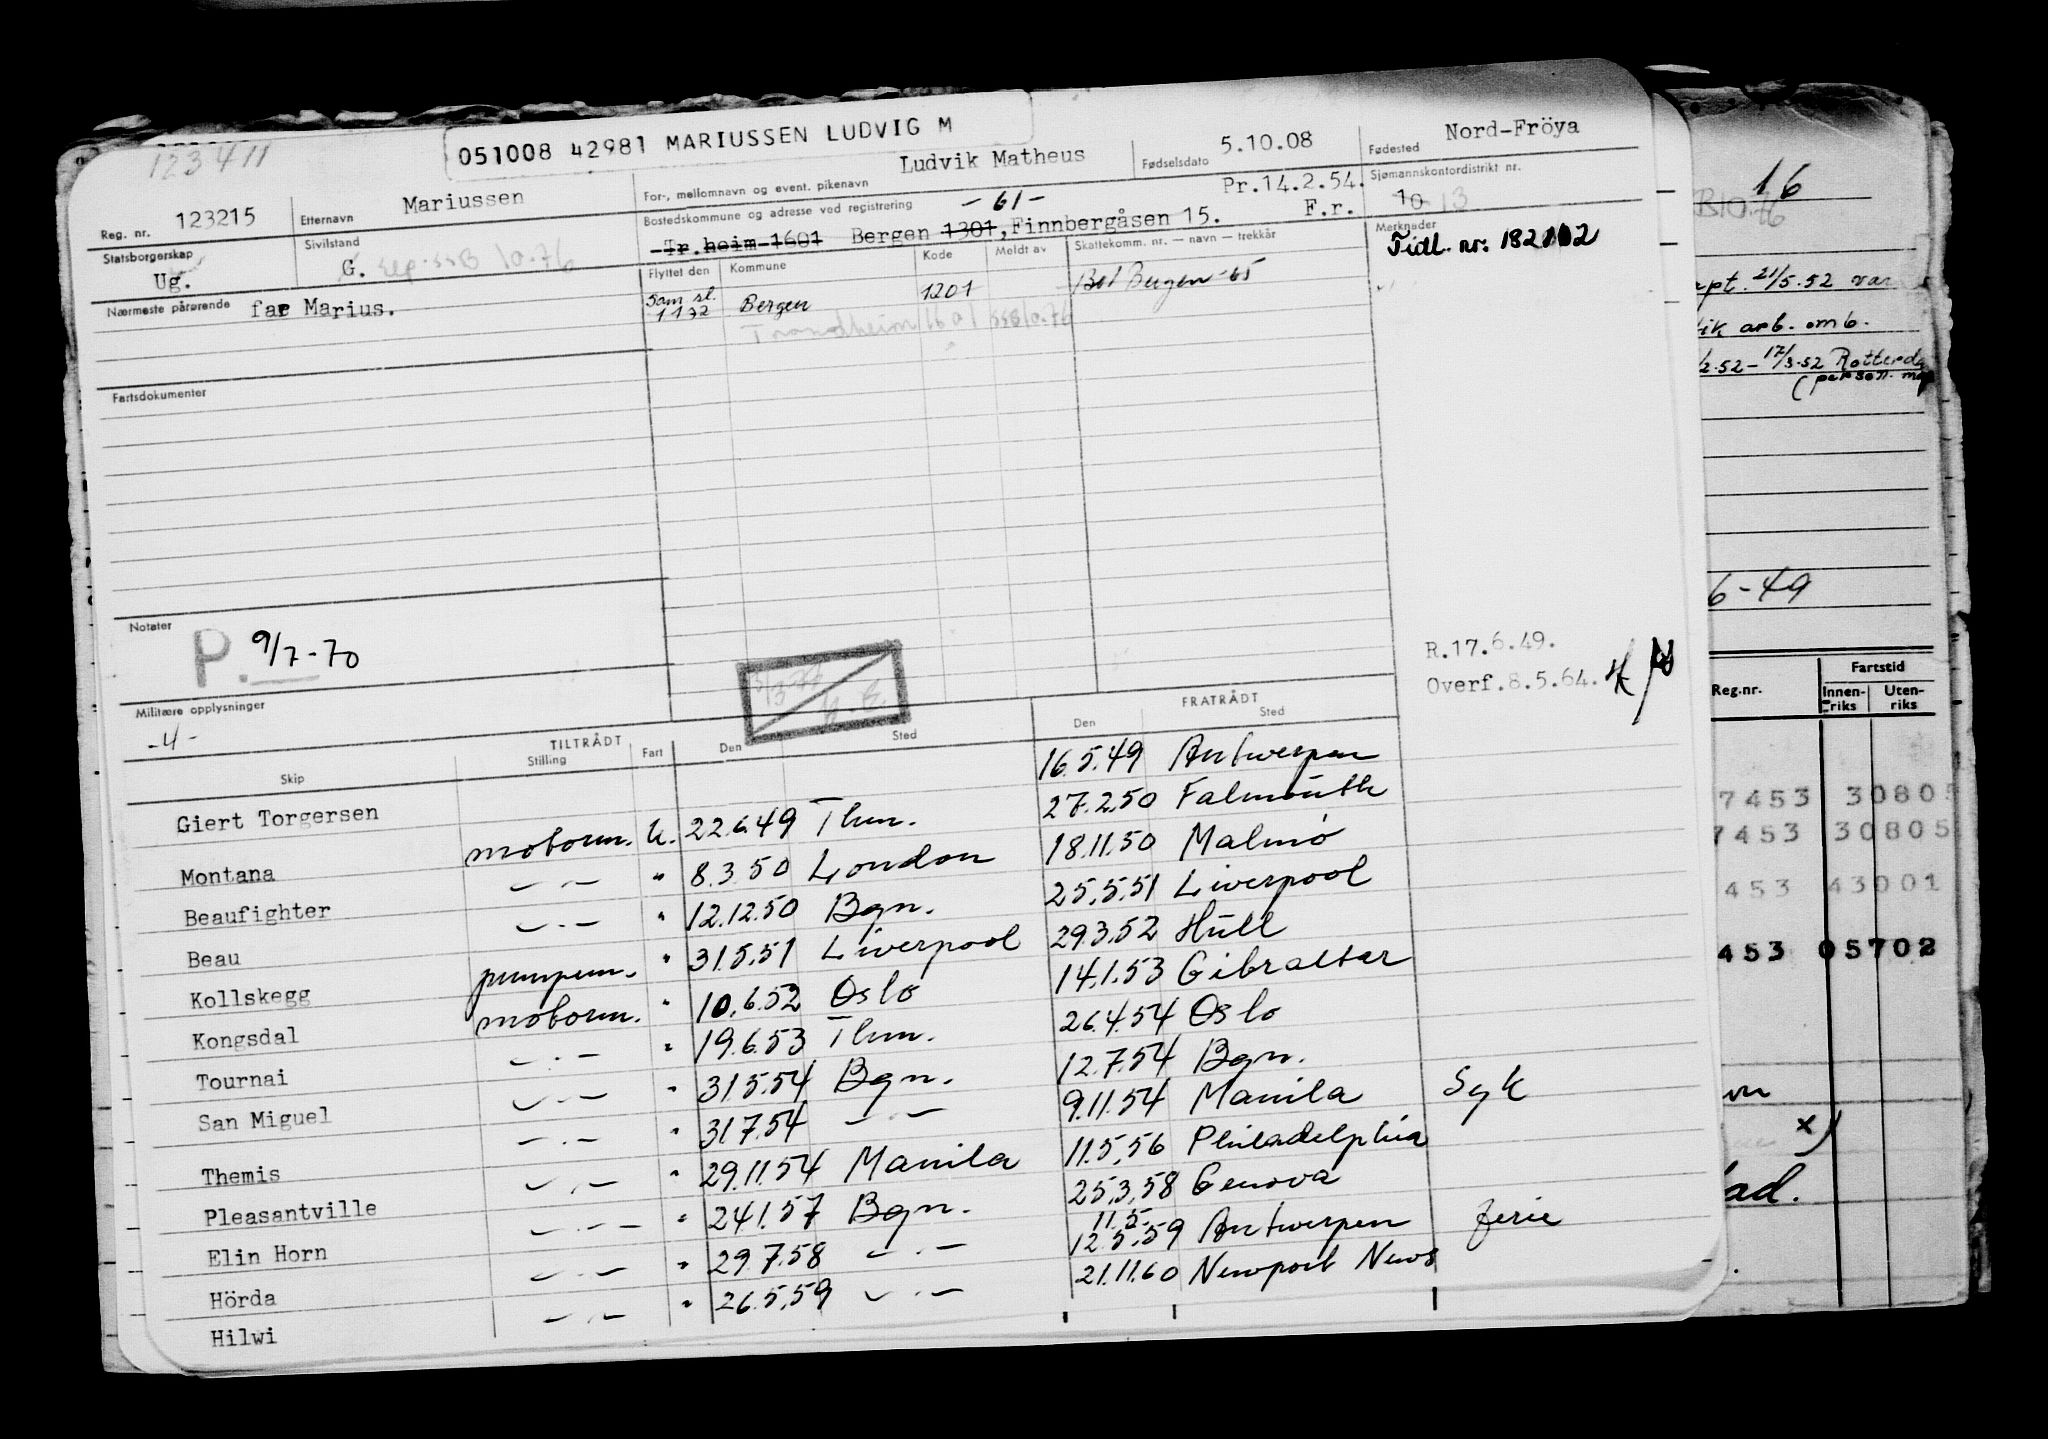 123411
051008 42981 MARIUSSEN LUDVIG M
Reg. nr. 123215 Etternavn Mariussen For-, mellomnavn og event. pikenavn Ludvik Matheus Fødselsdato 5.10.08 Fødested Nord-Fröya
Statsborgerskap Ug. Sivilstand G. sep. SSB 10-76 Bostedskommune og adresse ved registrering -61- Pr.14.2.54. Sjømannskontordistrikt nr.
Tr.heim 1601 Bergen 1301, Finnbergåsen 15. F.r. 10 13
Nærmeste pårørende far Marius. Flyttet den Kommune Kode Meldt av Skattekomm. nr. — navn — trekkår Merknader
Tidl. nr. 182102
Sam sl. 1132 Bergen 1201 Bergen -65
Trondheim 1601 SSB 10-76
Fartsdokumenter
Notater
P. 9/7-70
R.17.6.49.
Overf.8.5.64.
Militære opplysninger
-4-
TILTRÅDT FRATRÅDT
Skip Stilling Fart Den Sted Den Sted
Giert Torgersen 16.5.49 Antwerpen
Montana motorm. U. 22.6.49 Thm. 27.2.50 Falmouth
Beaufighter — . — " 8.3.50 London 18.11.50 Malmö
Beau — . — " 12.12.50 Bgn. 25.5.51 Liverpool
Kollskegg pumpem. " 31.5.51 Liverpool 29.3.52 Hull
Kongsdal motorm. " 10.6.52 Oslo 14.1.53 Gibraltar
Tournai — . — " 19.6.53 Thm. 26.4.54 Oslo
San Miguel — . — " 31.5.54 Bgn. 12.7.54 Bgn.
Themis — . — " 31.7.54 — . — 9.11.54 Manila Syk
Pleasantville — . — " 29.11.54 Manila 11.5.56 Philadelphia
Elin Horn — . — " 24.1.57 Bgn. 25.3.58 Genova
Hörda — . — " 29.7.58 — . — 11.5. 12.5.59 Antwerpen ferie
Hilwi — . — " 26.5.59 — . — 21.11.60 Newport News
16
B10.76
pt. 21/5.52 var
ik arb. omb.
/2.52 - 17/3.52 Rotterda
(person. m
6-49
Reg.nr. Fartstid
Innen-riks Uten-riks
7453 30805
7453 30805
453 43001
453 05702
x)
ad.